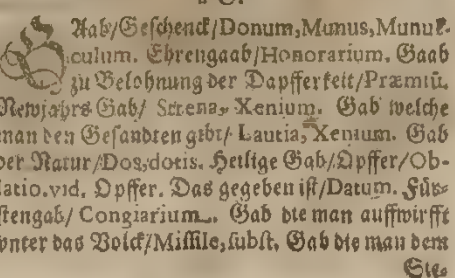 GAab/Geschenck/Donum, Munus, Munus-
culum. Ehrengaab/Honorarium. Gaab
zu Belohnung der Dapfferkeit/Præmiū.
Newjahrs Gab/ Strena, Xenium. Gab welche
man den Gesandten gibt/ Lautia, Xenium. Gab
der Natur/Dos, dotis. Heilige Gab/Opffer/Ob-
latio. vid. Opffer. Das gegeben ist/Datum. Für-
stengab/ Congiarium. Gab die man auffwirfft
vnter das Volck/Missile, subst. Gab die man dem
Sie-